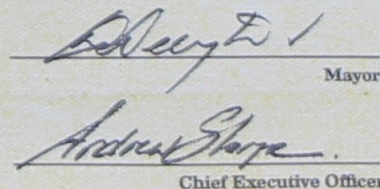 Mayor
Andrew Sharpe
Chief Executive Officer